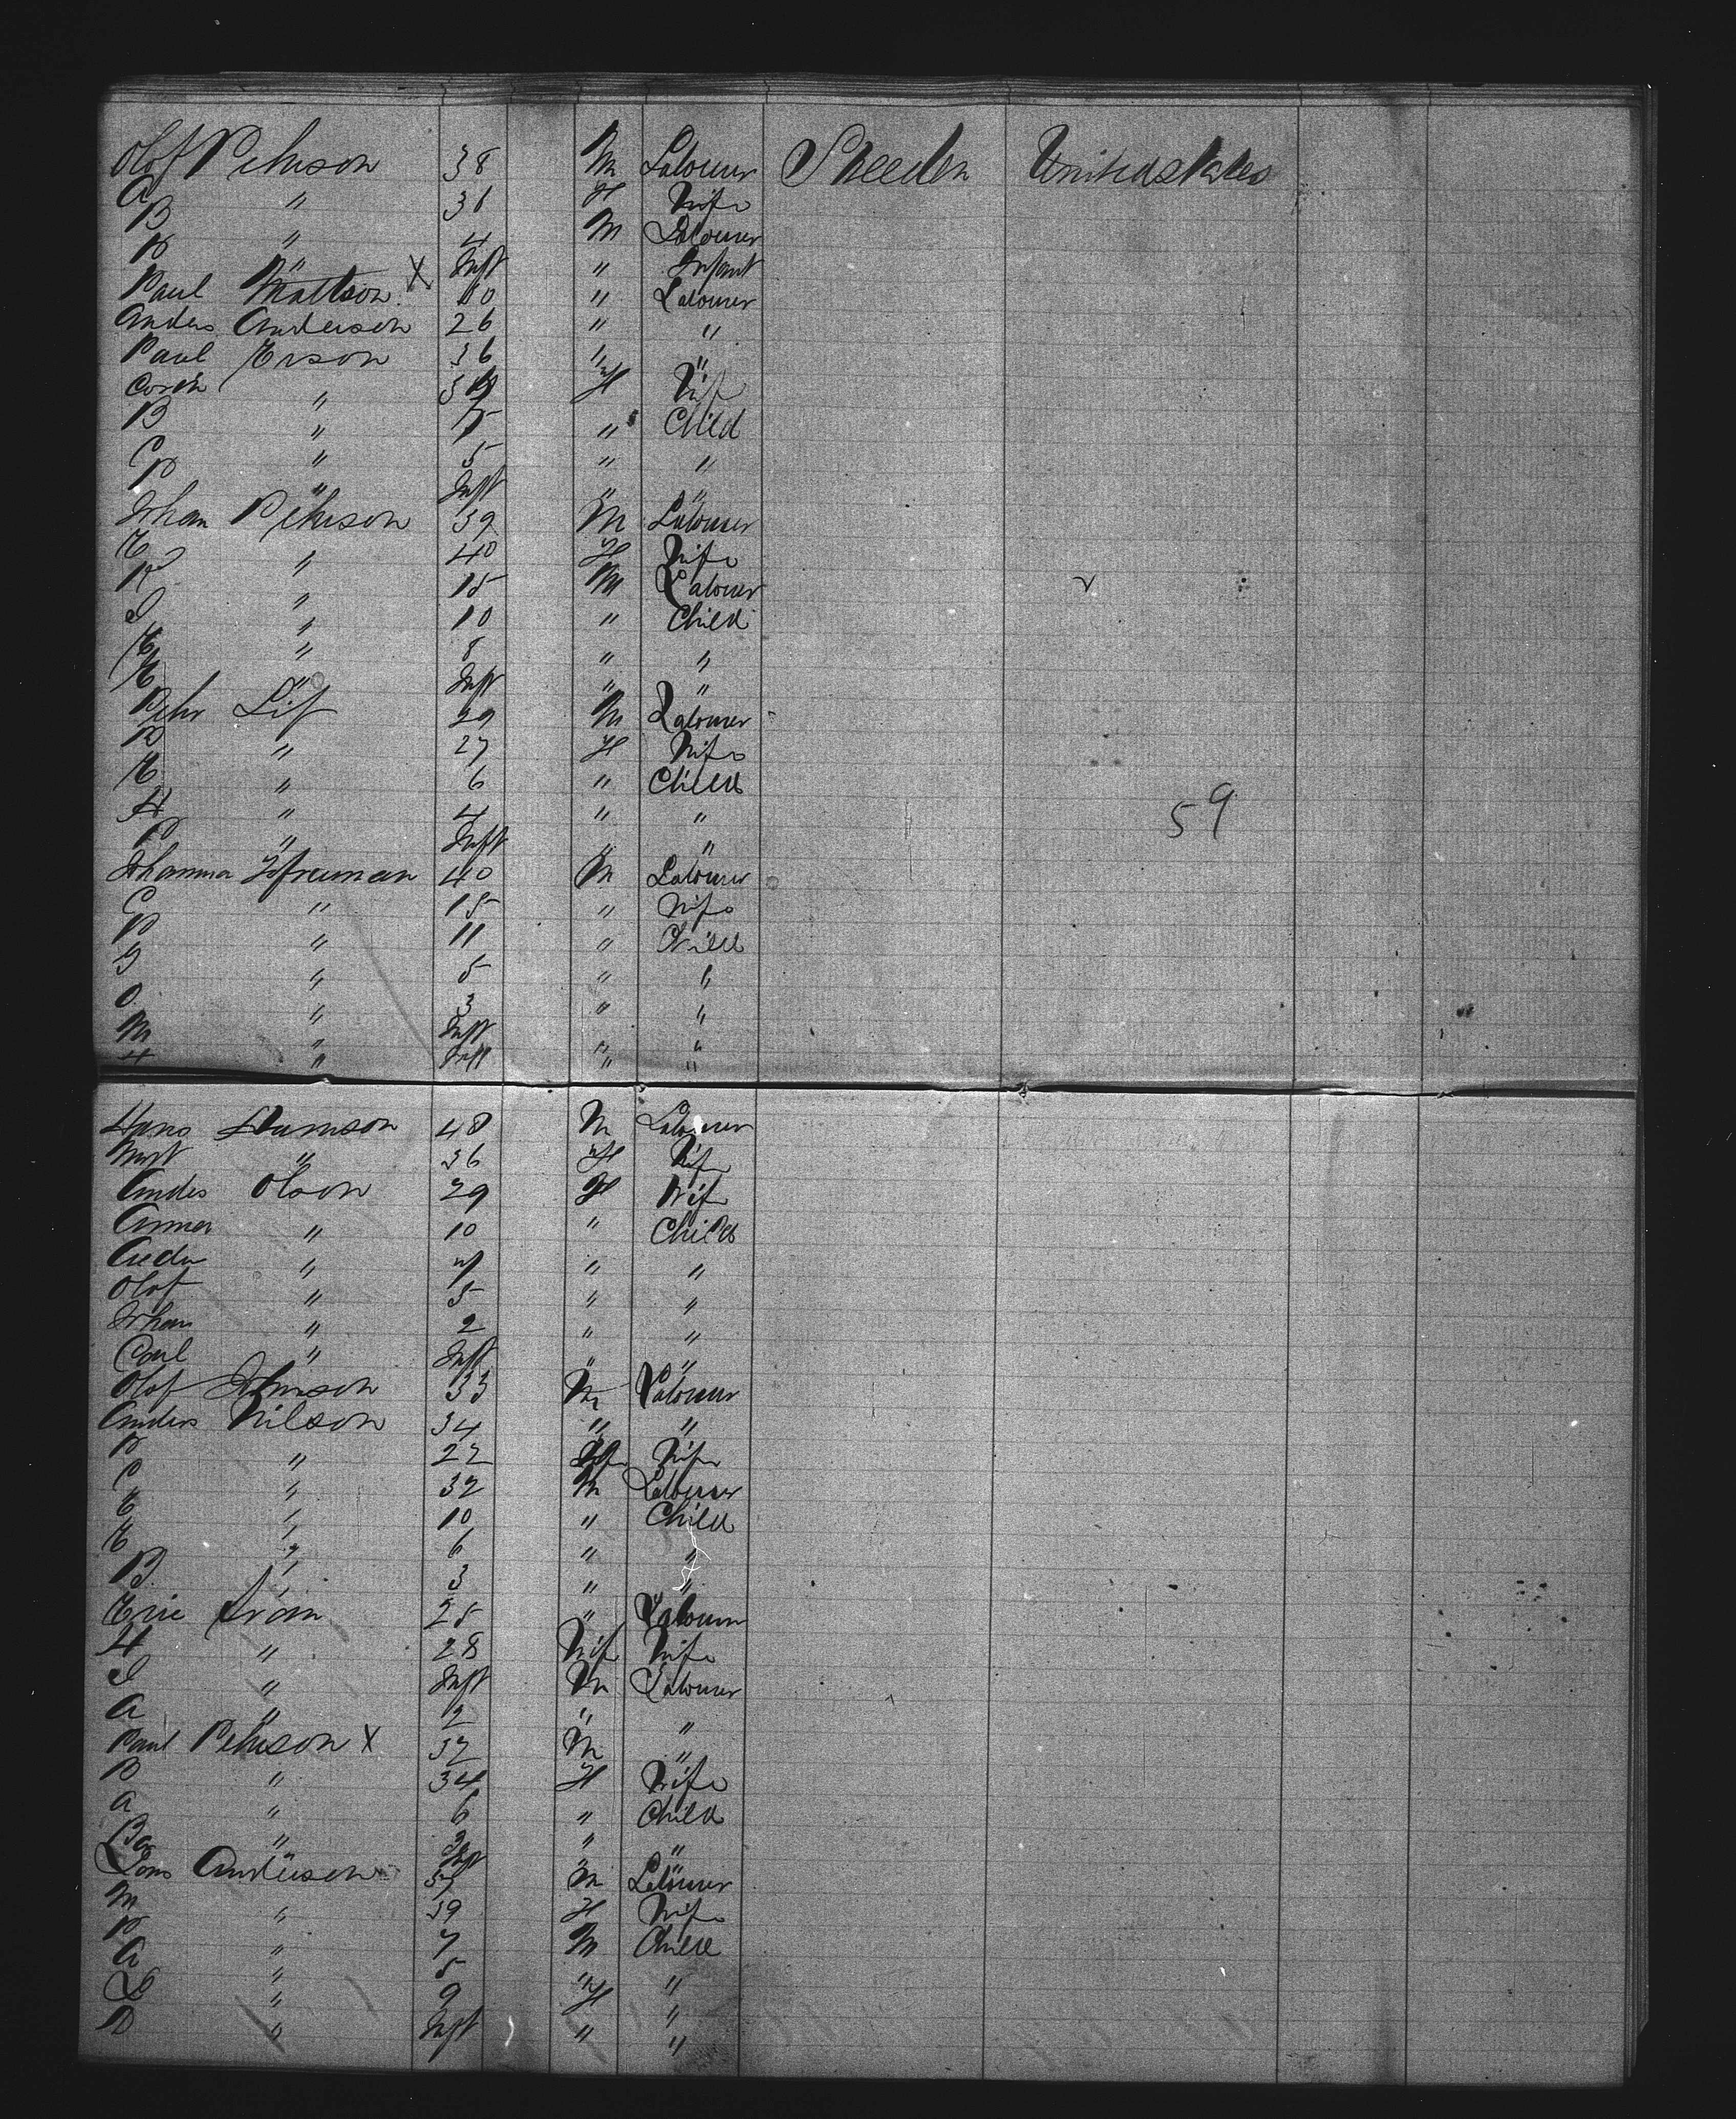 Olof Pehrson 38 M Labourer Sweeden United States
A " 36 F Wife
B " 4 M Labourer
P " Inft " Infant
Paul Mattson X 60 " Labourer
Anders Anderson 26 " "
Paul Erson 36 " "
" F Wife
B " " Child
C " 5 " "
P " Inft " "
Johan Pehrson 39 M Labourer
E " 40 F Wife
" 15 M Labourer
J " 10 " Child
E " 8 " "
E " Inft " "
Pehr Lif 29 M Labourer
B " 27 F Wife
E " 6 " Child
H " 4 " "
P " Inft " "
Johanna 40 M Labourer
C " 15 " Wife
P " 11 " Child
G " 5 " "
O " 3 " "
M " Inft " "
H " Inft " "
59
Hans 48 M Labourer
" 36 F Wife
Anders Olson 29 F Wife
Anna " 10 " Child
" 7 " "
Olof " 5 " "
Johan " 2 " "
Carl " Inft " "
Olof Johnson 33 M Labourer
Anders Nilson 34 " "
P " 22 Wife
C " 32 M Labourer
E " 10 " Child
E " 6 " "
B " 3 " "
Eric 25 " Labourer
H " 28 Wif Wife
J " Inft M Labourer
A " 2 " "
Paul Pehrson X 32 M "
B " 34 F Wife
A " 6 " Child
" Inft " "
Anderson M Labourer
M " 39 F Wife
P " 7 M Child
A " 5 " "
L " 9 F "
B " Inft " "